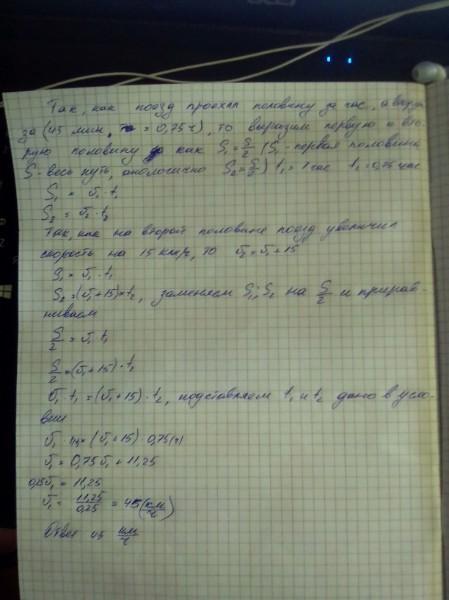 Так, как поезд проехал половину за час, а вторую
за (45 мин, = 0,75 ч), то выразим первую и вто-
рую половину как S₁ = S/2 (S₁ - первая половина
S - весь путь, аналогично S₂ = S/2) t₁ = 1 час t₂ = 0,75 час
S₁ = v₁ · t₁
S₂ = v₂ · t₂
Так, как на второй половине поезд увеличил
скорость на 15 км/ч, то v₂ = v₁ + 15
S₁ = v₁ · t₁
S₂ = (v₁ + 15) · t₂, заменяем S₁, S₂ на S/2 и прирав-
ниваем
S/2 = v₁ · t₁
S/2 = (v₁ + 15) · t₂
v₁ · t₁ = (v₁ + 15) · t₂, подставляем t₁ и t₂ дано в усло-
вии
v₁ · 1ч = (v₁ + 15) · 0,75(ч)
v₁ = 0,75v₁ + 11,25
0,25v₁ = 11,25
v₁ = 11,25/0,25 = 45 (км/ч)
Ответ 45 км/ч